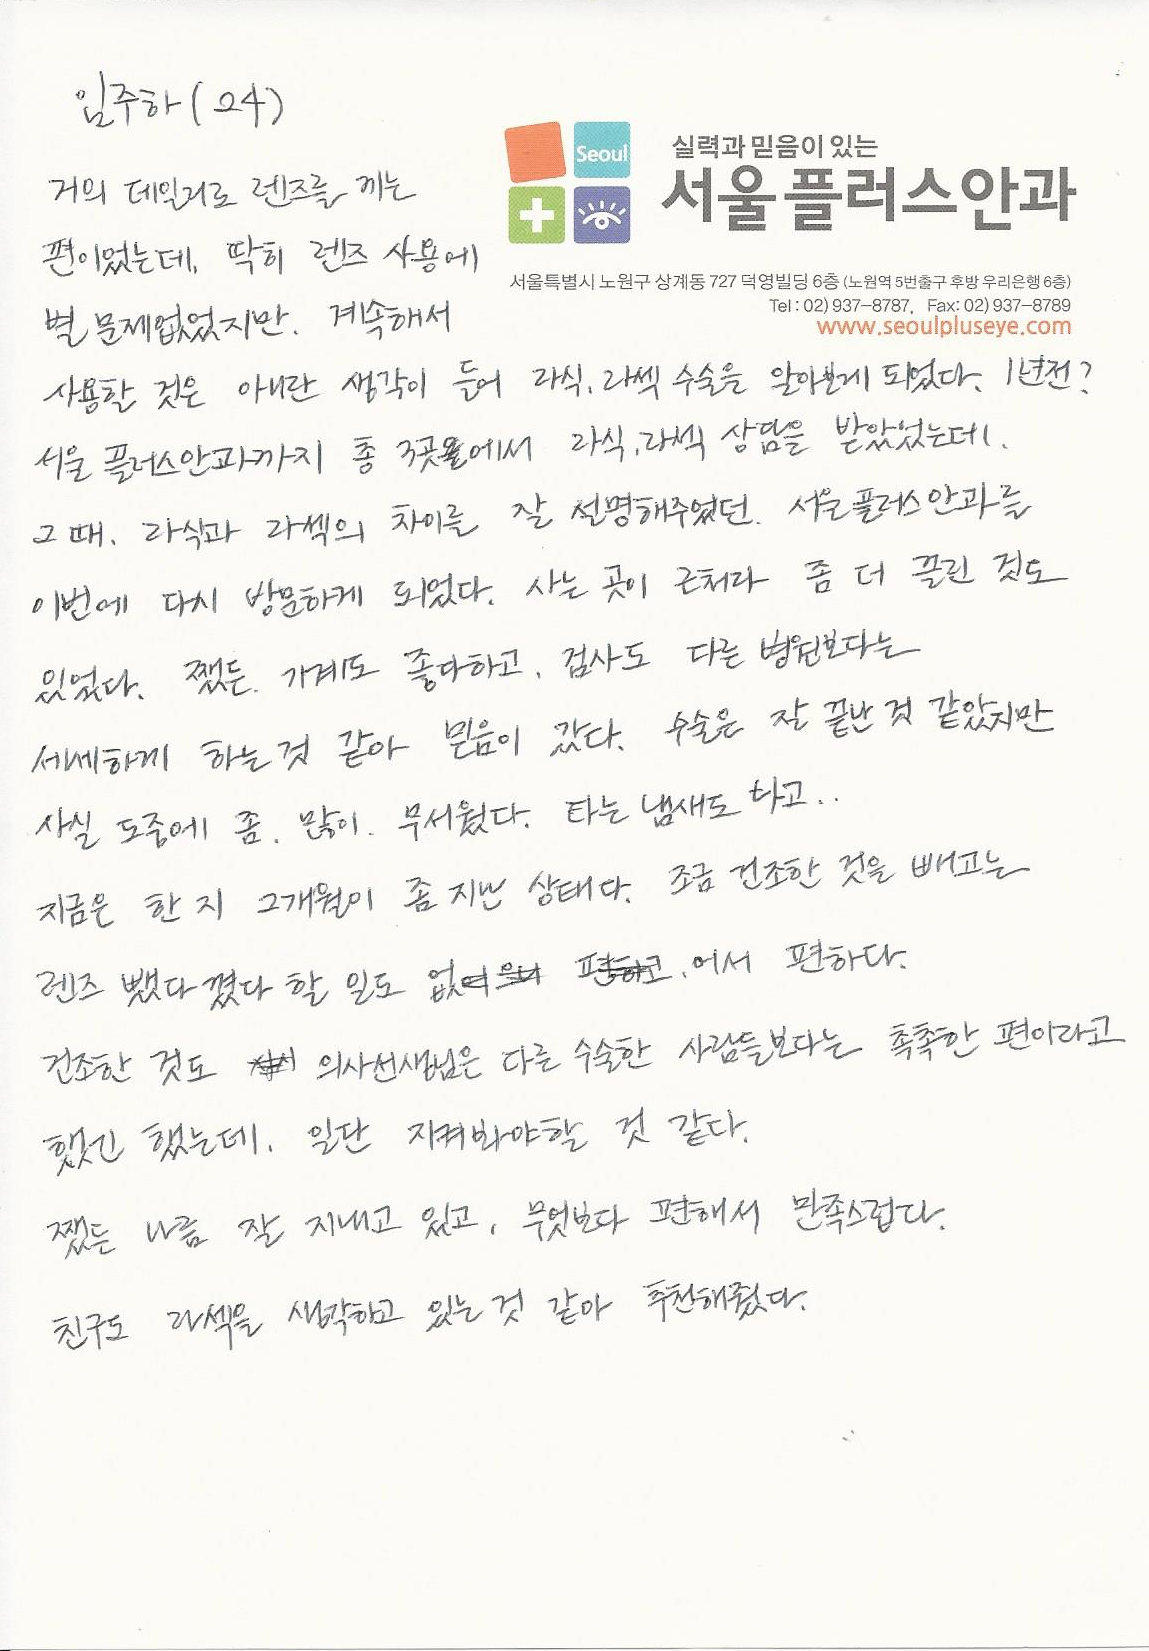 임주하 (24)
Seoul
실력과 믿음이 있는
서울플러스안과
서울특별시 노원구 상계동 727 덕영빌딩 6층 (노원역 5번출구 후방 우리은행 6층)
Tel : 02) 937-8787, Fax: 02) 937-8789
www.seoulpluseye.com
거의 데일리로 렌즈를 끼는
편이었는데, 딱히 렌즈 사용에
별 문제없었지만. 계속해서
사용할 것은 아니란 생각이 들어 라식, 라섹 수술을 알아보게 되었다. 1년전?
서울 플러스안과까지 총 3곳에서 라식, 라섹 상담을 받았었는데,
그 때, 라식과 라섹의 차이를 잘 설명해주었던. 서울플러스안과를
이번에 다시 방문하게 되었다. 사는 곳이 근처라 좀 더 끌린 것도
있었다. 쨌든. 가계도 좋다하고, 검사도 다른 병원보다는
세세하게 하는것 같아 믿음이 갔다. 수술은 잘 끝난 것 같았지만
사실 도중에 좀. 많이. 무서웠다. 타는 냄새도 나고..
지금은 한 지 2개월이 좀 지난 상태다. 조금 건조한 것을 빼고는
렌즈 뺐다 꼈다 할 일도 없어서 편하다.
건조한 것도 의사선생님은 다른 수술한 사람들보다는 촉촉한 편이라고
했긴 했는데, 일단 지켜봐야할 것 같다.
쨌든 나름 잘 지내고 있고, 무엇보다 편해서 만족스럽다.
친구도 라섹을 생각하고 있는것 같아 추천해줬다.